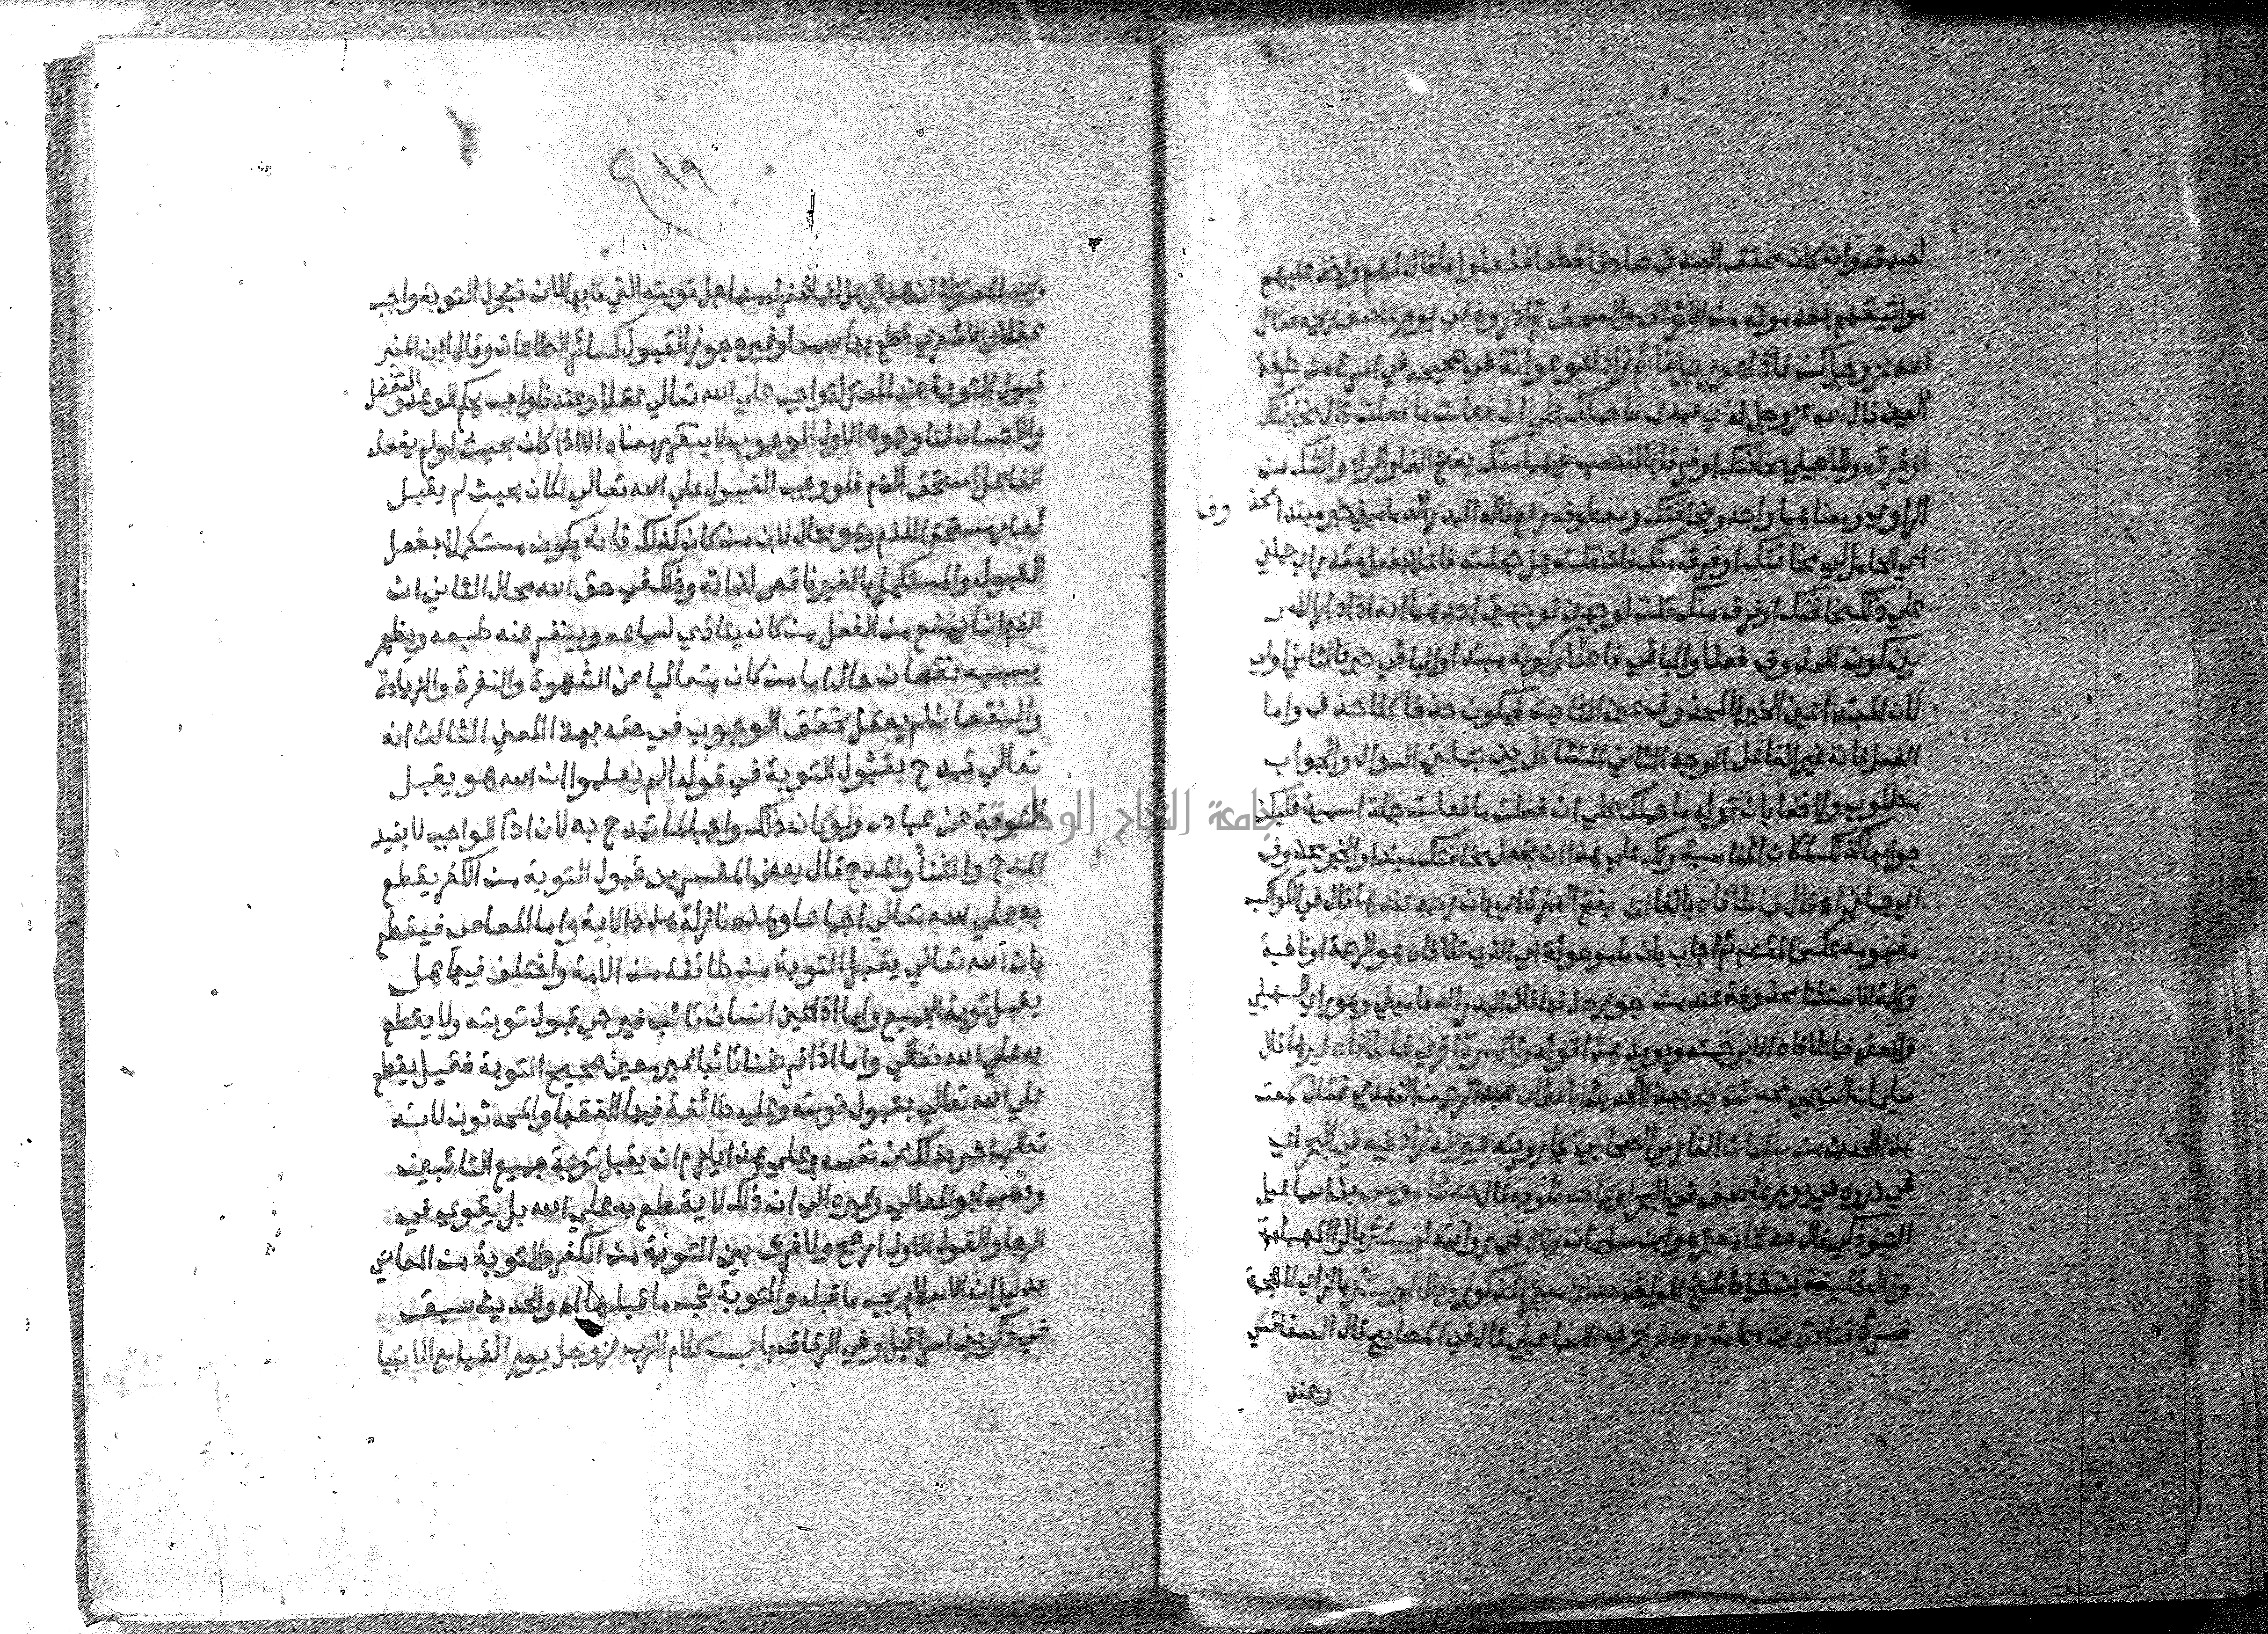 لصدقه وان كان محقق الصدق صادقا قطعا ففعلوا ما قال لهم واخذ عليهم
مواثيقهم بعد موته من الاحراق والسحق ثم اذروه في يوم عاصف ريحه فقال
الله عز وجل كن فاذا هو رجل قائم زاد ابو عوانة في صحيحه في اسرع من طرفة
العين قال الله عز وجل له اي عبدي ما حملك علي ان فعلت ما فعلت قال مخافتك
او فرق وللاصيلي مخافتك او فرقا بالنصب فيهما منك بفتح الفا والراء والشك من
الراوي ومعناهما واحد ومخافتك ومعطوفه رفع قاله البدر الدماميني خبر مبتدا محذوف
اي الحامل لي مخافتك او فرق منك فان قلت هل جعلته فاعلا بفعل مقدر اي حملني
علي ذلك مخافتك او فرق منك قلت لوجهين لوجهين احدهما انه اذا دار الامر
بين كون المحذوف فعلا والباقي فاعلا وكونه مبتدا والباقي خبرا فالثاني اولي
لان المبتدا عين الخبر فالمحذوف عين الثابت فيكون حذفا كلا حذف واما
الفعل فانه غير الفاعل الوجه الثاني التشاكل بين جملتي السوال والجواب
مطلوب ولا خفا بان قوله ما حملك علي ان فعلت ما فعلت جملة اسمية فليكن
جوابها كذلك لمكان المناسبة ولك علي هذا ان تجعل مخافتك مبتدا والخبر محذوف
اي حملتني اه قال فما تلافاه بالفا ان بفتح الهمزة اي بان رحمه عندها قال في الكواكب
مفهومه عكس المقصود ثم اجاب بان ما موصولة اي الذي تلافاه هو الرحمة او نافية
وكلمة الاستثنا محذوفة عند من جوز حذفها قال البدر الدماميني وهو راي السهيلي
والمعني فما تلافاه الا برحمته ويويد هذا قوله وقال مرة اخري فما تلافاه غيرها قال
سليمان التيمي فحدثت به بهذا الحديث ابا عثمان عبد الرحمن النهدي فقال سمعت
هذا الحديث من سلمان الفارسي الصحابي كما رويته غير انه زاد فيه في البحر اي
في ذروه في يوم عاصف في البحر او كما حدث وبه قال حدثنا موسي بن اسماعيل
التبوذكي قال حدثنا معتمر هو ابن سليمان وقال في روايته لم يبتئر بالرا المهملة
وقال خليفة بن خياط شيخ المولف حدثنا معتمر المذكور وقال لم يبتئز بالزاي المعجمة
فسره قتادة بن دعامة لم يدخر خرجه الاسماعيلي قال في المصابيح قال السفاقسي
وعند
٤١٩
وعند المعتزلة ان هذا الرجل انما غفر له من اجل توبته التي تابها لان قبول التوبة واجب
عقلا والاشعري قطع بها سمعا وغيره جوز القبول كسائر الطاعات وقال ابن المنير
قبول التوبة عند المعتزلة واجب علي الله تعالي عقلا وعندنا واجب بحكم الوعد والتفضل
والاحسان لنا وجوه الاول الوجوب لا يتقرر معناه الا اذا كان بحيث لو لم يفعله
الفاعل استحق الذم فلو وجب القبول علي الله تعالي لكان بحيث لم يقبل
لصار مستحقا للذم وهو محال لان من كان كذلك فانه يكون مستكملا بفعل
القبول والمستكمل بالغير ناقص لذاته وذلك في حق الله محال الثاني ان
الذم انما يمنع من الفعل من كان يتاذي لسماعه وينفر عنه طبعه ويظهر
بسببه نقصان حال اما من كان متعاليا عن الشهوة والنفرة والزيادة
والنقصان لم يعقل تحقق الوجوب في حقه بهذا المعني الثالث انه
تعالي تمدح بقبول التوبة في قوله الم يعلموا ان الله هو يقبل
التوبة عن عباده ولو كان ذلك واجبا لما تمدح به لان اذا الواجب لا يفيد
المدح والثنا والمدح قال بعض المفسرين قبول التوبة من الكفر يقطع
به علي الله تعالي اجماعا وهذه نازلة هذه الاية واما المعاصي فيقطع
بان الله تعالي يقبل التوبة من طائفة من الامة واختلف فيما هل
يقبل توبة الجميع واما اذا عين انسان تائب فيرجي قبول توبته ولا يقطع
به علي الله تعالي واما اذا فرضنا تائبا غير معين صحيح التوبة فقيل يقطع
علي الله تعالي بقبول توبته وعليه طائفة فيها الفقها والمحدثون لانه
تعالي اخبر بذلك عن نفسه وعلي هذا يلزم ان يقبل توبة جميع التائبين
وذهب ابو المعالي وغيره الي ان ذلك لا يقطع به علي الله بل يقوي في
الرجا والقول الاول ارجح ولا فرق بين التوبة من الكفر والتوبة من المعاصي
بدليل ان الاسلام يجب ما قبله والتوبة تجب ما قبلها اه والحديث سبق
في ذكر بني اسرائيل وفي الرقاق باب كلام الرب عز وجل يوم القيامة مع الانبيا
جامعة النجاح الوطنية